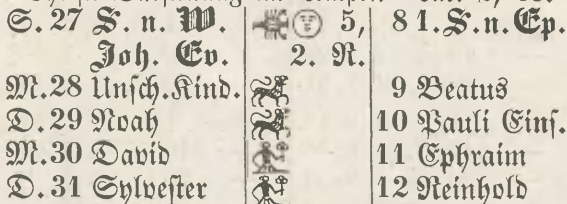 S. 27 S. n. W. 5, 8 1. S. n. Ep.
Joh. Ev. 2. R.
M. 28 Unsch. Kind. 9 Beatus
D. 29 Noah 10 Pauli Eins.
M. 30 David 11 Ephraim
D. 31 Sylvester 12 Reinhold